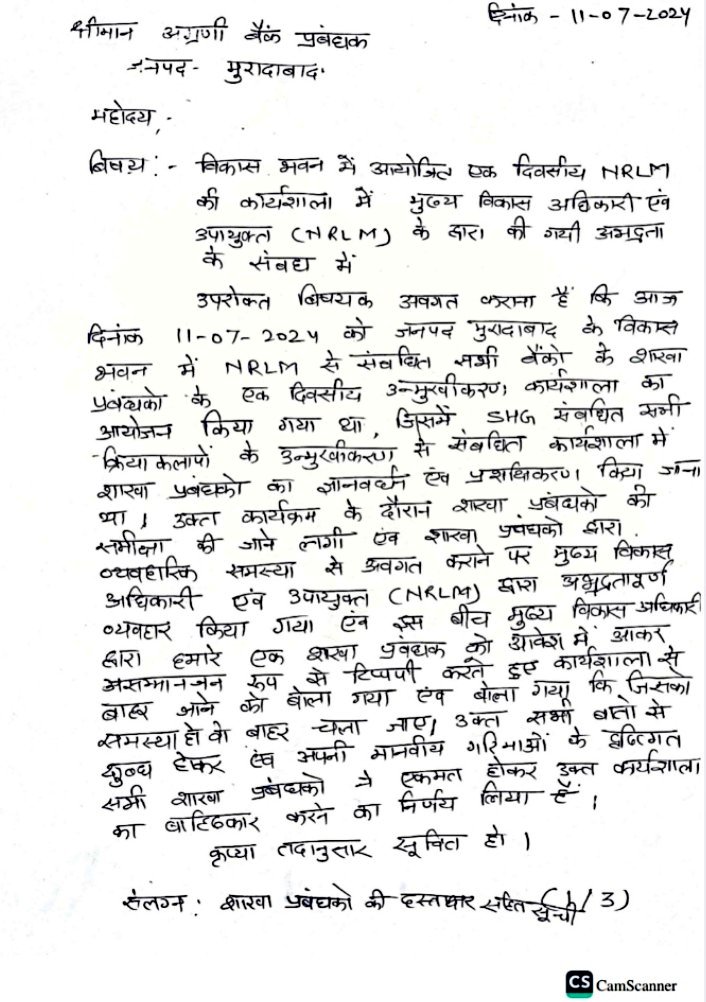 दिनांक - 11-07-2024
श्रीमान अग्रणी बैंक प्रबंधक
जनपद - मुरादाबाद
महोदय,-
बिषय:- विकास भवन में आयोजित एक दिवसीय NRLM
की कार्यशाला में मुख्य विकास अधिकारी एंव
उपायुक्त (NRLM) के द्वारा की गयी अभद्रता
के संबध में
उपरोक्त बिषयक अवगत कराना है कि आज
दिनांक 11-07-2024 को जनपद मुरादाबाद के विकास
भवन में NRLM से संबधित सभी बैंको के शाखा
प्रबंधको के एक दिवसीय उन्मुखीकरण कार्यशाला का
आयोजन किया गया था, जिसमें SHG संबधित सभी
क्रियाकलापों के उन्मुखीकरण से संबधित कार्यशाला में
शाखा प्रबंधको का ज्ञानवर्धन एंव प्रशक्षिकरण किया जाना
था। उक्त कार्यक्रम के दौरान शाखा प्रबंधको की
समीक्षा की जाने लगी एंव शाखा प्रबंधको द्वारा
व्यवहारिक समस्या से अवगत कराने पर मुख्य विकास
अधिकारी एंव उपायुक्त (NRLM) द्वारा अभद्रतापूर्ण
व्यवहार किया गया एंव इस बीच मुख्य विकास अधिकारी
द्वारा हमारे एक शाखा प्रबंधक को आवेश में आकर
असम्मानजन रूप से टिप्पपी करते हुए कार्यशाला से
बाहर जाने को बोला गया एंव बोला गया कि जिसको
समस्या हो वो बाहर चला जाए। उक्त सभी बातो से
क्षुब्ध होकर एंव अपनी मानवीय गरिमाओं के दृष्टिगत
सभी शाखा प्रबंधको ने एकमत होकर उक्त कार्यशाला
का बाहिष्कार करने का निर्णय लिया हैं।
कृप्या तदानुसार सूचित हो।
संलग्न: शाखा प्रबंधको की हस्ताक्षर सहित सूची (1/3)
CS CamScanner